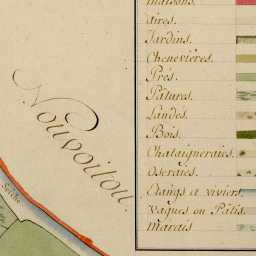 Maisons.
Aires.
Jardins.
Chenevières.
Prés.
Pâtures.
Landes.
Bois.
Chataigneraies.
Oseraies.
Etangs et viviers
Vagues ou Pâtis.
Marais
Nouvoitou.
Seiche